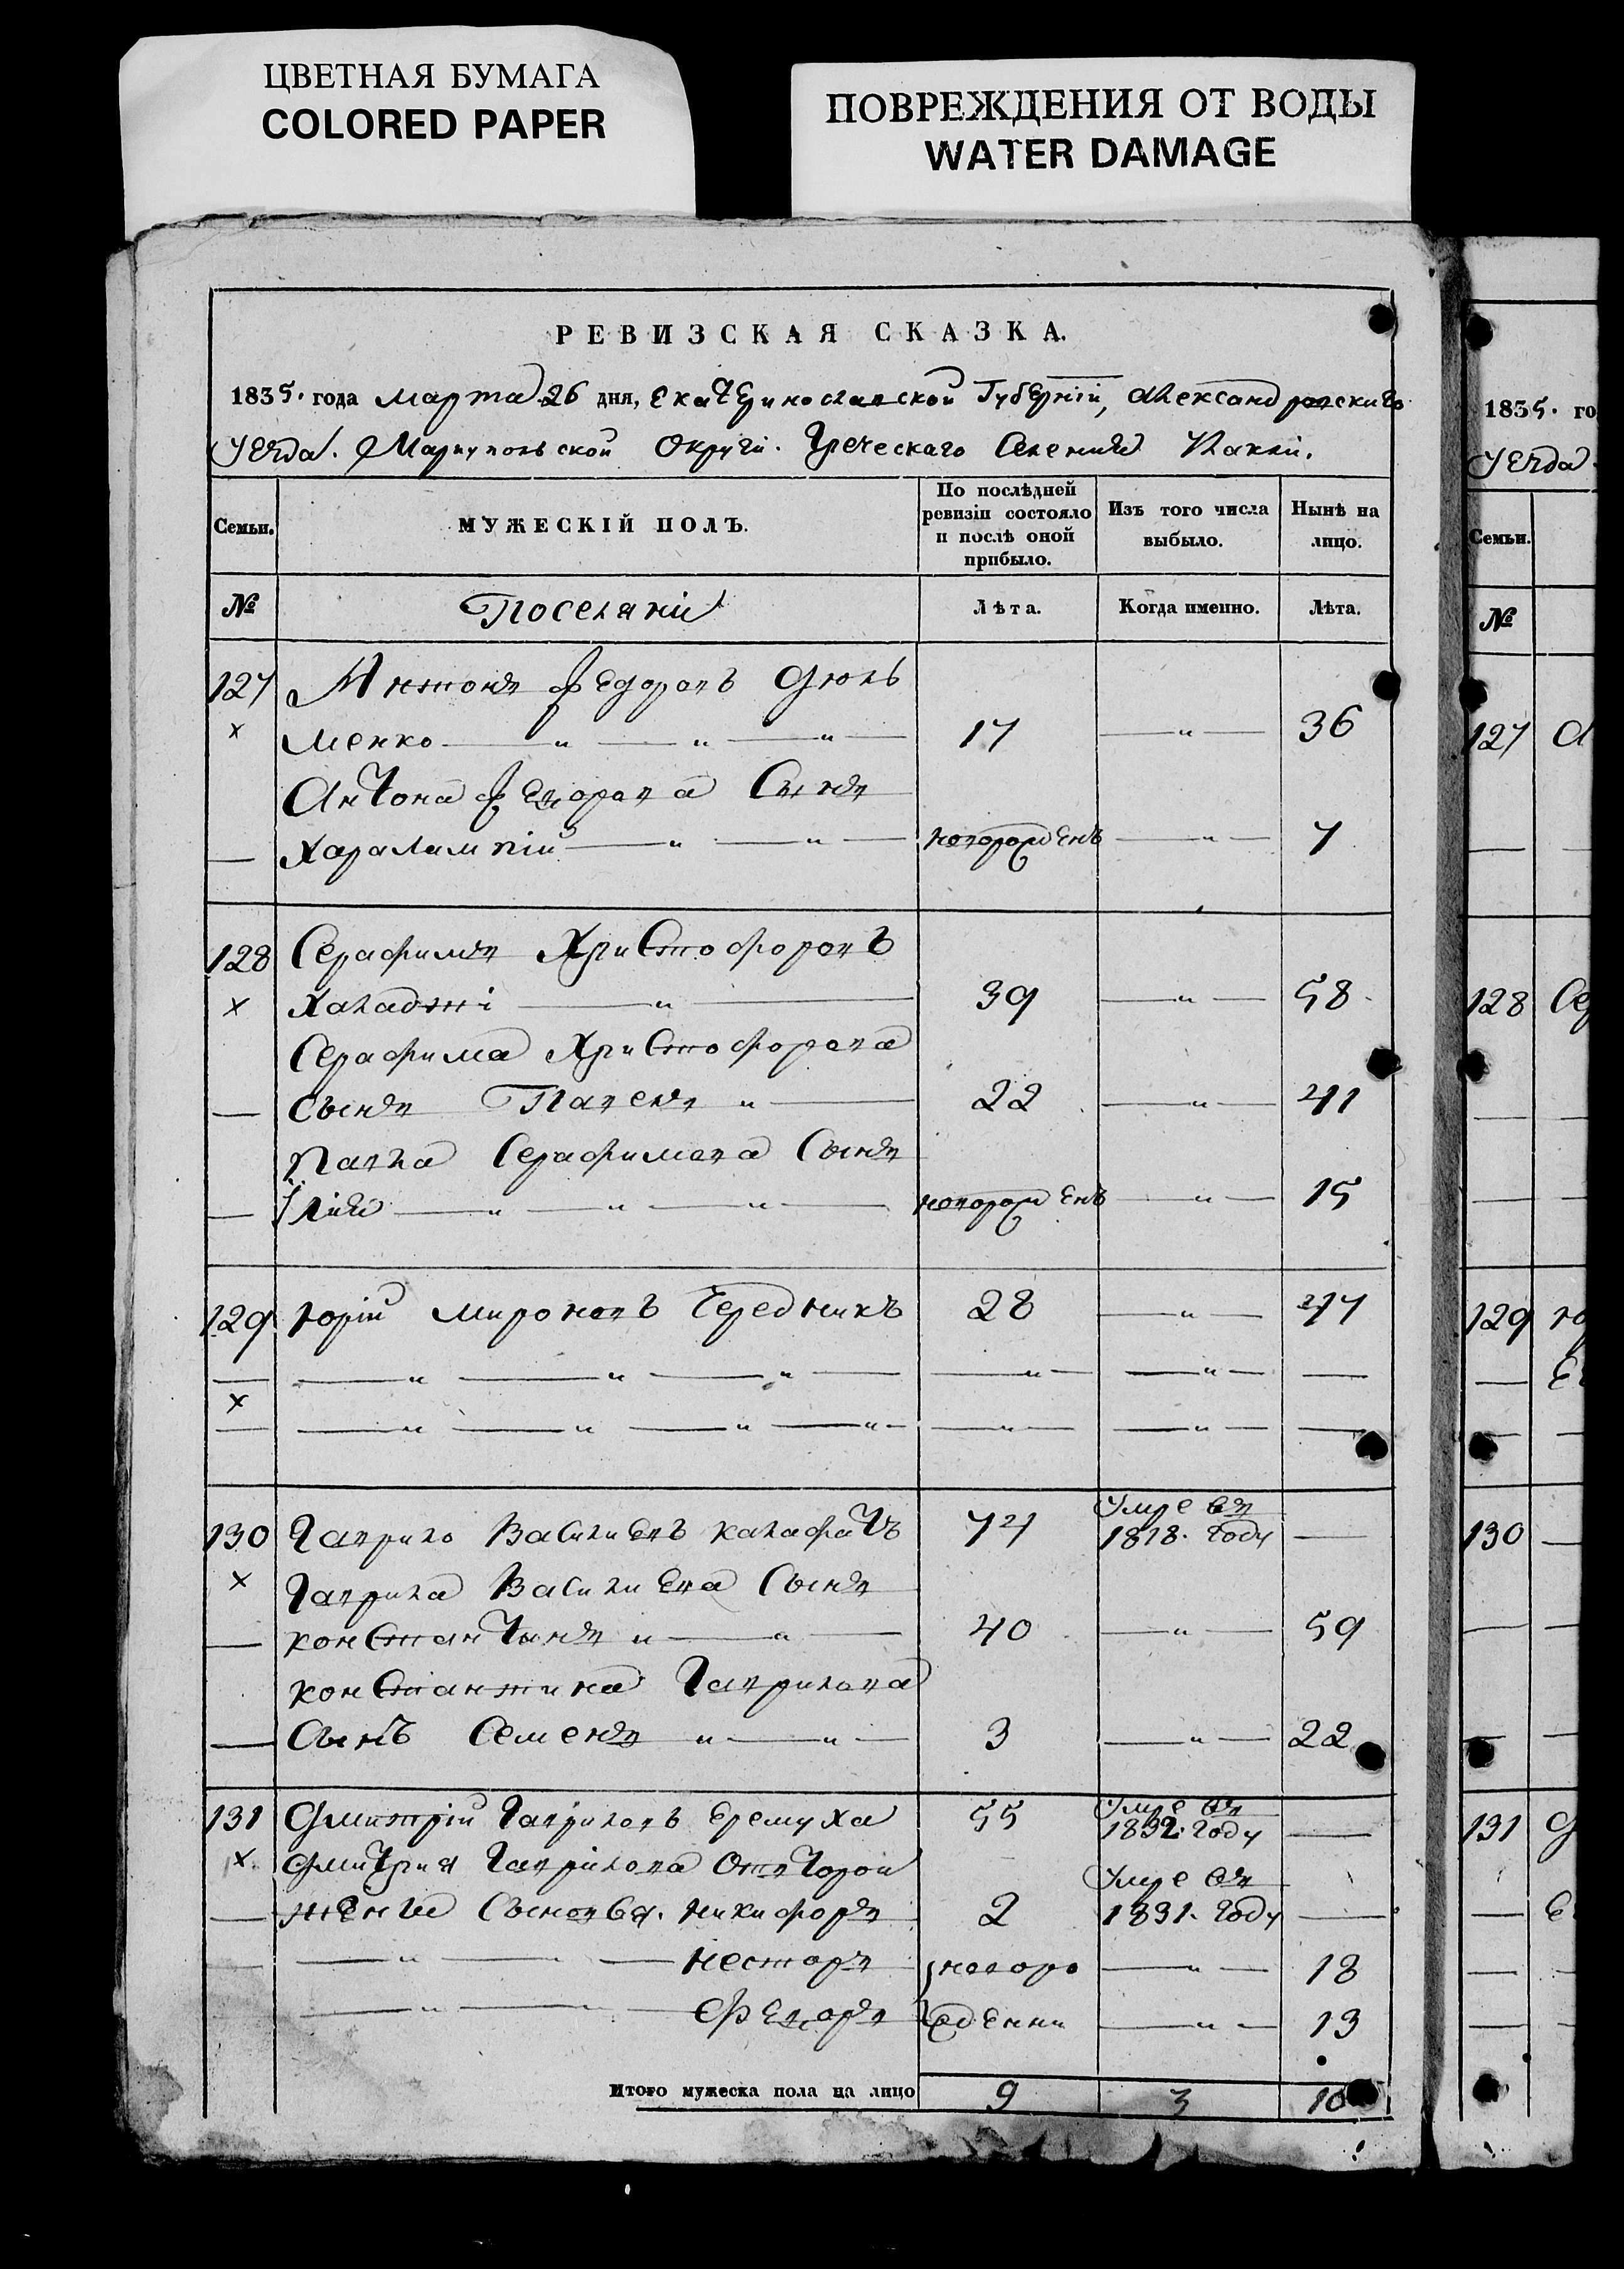 ЦВЕТНАЯ БУМАГА
COLORED PAPER
ПОВРЕЖДЕНИЯ ОТ ВОДЫ
WATER DAMAGE
РЕВИЗСКАЯ СКАЗКА.
1835. года марта 26 дня, Екатеринославской Губерніи, Александровскаго
уезда. Мариупольской Округи. Греческаго Селения
Семьи.
МУЖЕСКІЙ ПОЛЪ.
По послѣдней ревизіи состояло и послѣ оной прибыло.
Изъ того числа выбыло.
Нынѣ на лицо.
№ Поселяни Лѣта. Когда именно. Лѣта.
127 Антонъ Федоровъ Дюль
× менко — " — " — " — 17 — " — 36
Антона Федорова Сынъ
— Харалампій — " — " — новорожденъ — " — 7
128 Серафимъ Христофоровъ
× Халаджі — " — 39 — " — 58
Серафима Христофорова
— Сынъ Павелъ " — 22 — " — 41
Павла Серафимова Сынъ
— Илия — " — " — " — новорожденъ — " — 15
129 Юрій Мироновъ Чередникъ 28 — " — 47
— — " — " — " — — " — — " — —
×
— — " — " — " — " — — " — — " — —
130 Гаврило Василиевъ Калафатъ 74 Умре въ
1818. году —
× Гаврила Василиева Сынъ
— Константинъ " — " — 40 — " — 59
Константина Гаврилова
— Сынъ Семенъ " — " — 3 — " — 22
131 Дмитрій Гавриловъ Еремуха 55 Умре въ
1832. году —
× Дмитрия Гаврілова Отвторой
Умре въ
— жены Сыновья. Никифоръ 2 1831. году —
— — " — " — Несторъ новоро — " — 18
— " — " — Федоръ жденни — " — 13
Итого мужеска пола на лицо 9 3 10
1835. го
уезда
Семьи.
№
127
128 Сер
129 Ю
130 —
131 Д